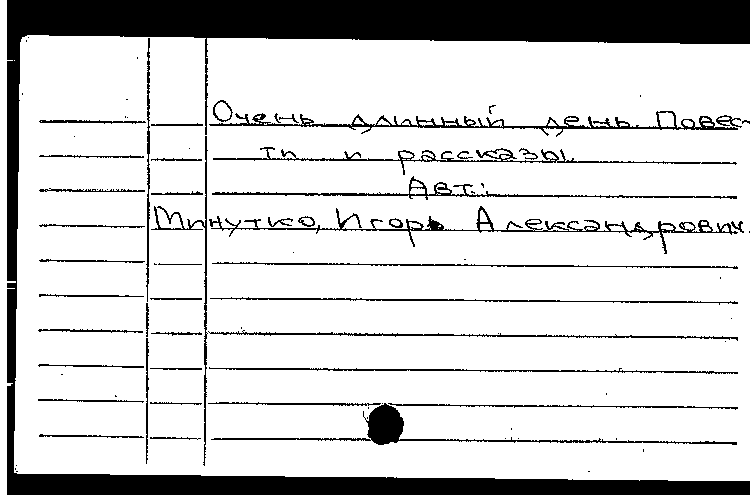 Очень длинный день. Повес-
ти и рассказы.
Авт.:
Минутко, Игорь Александрович.